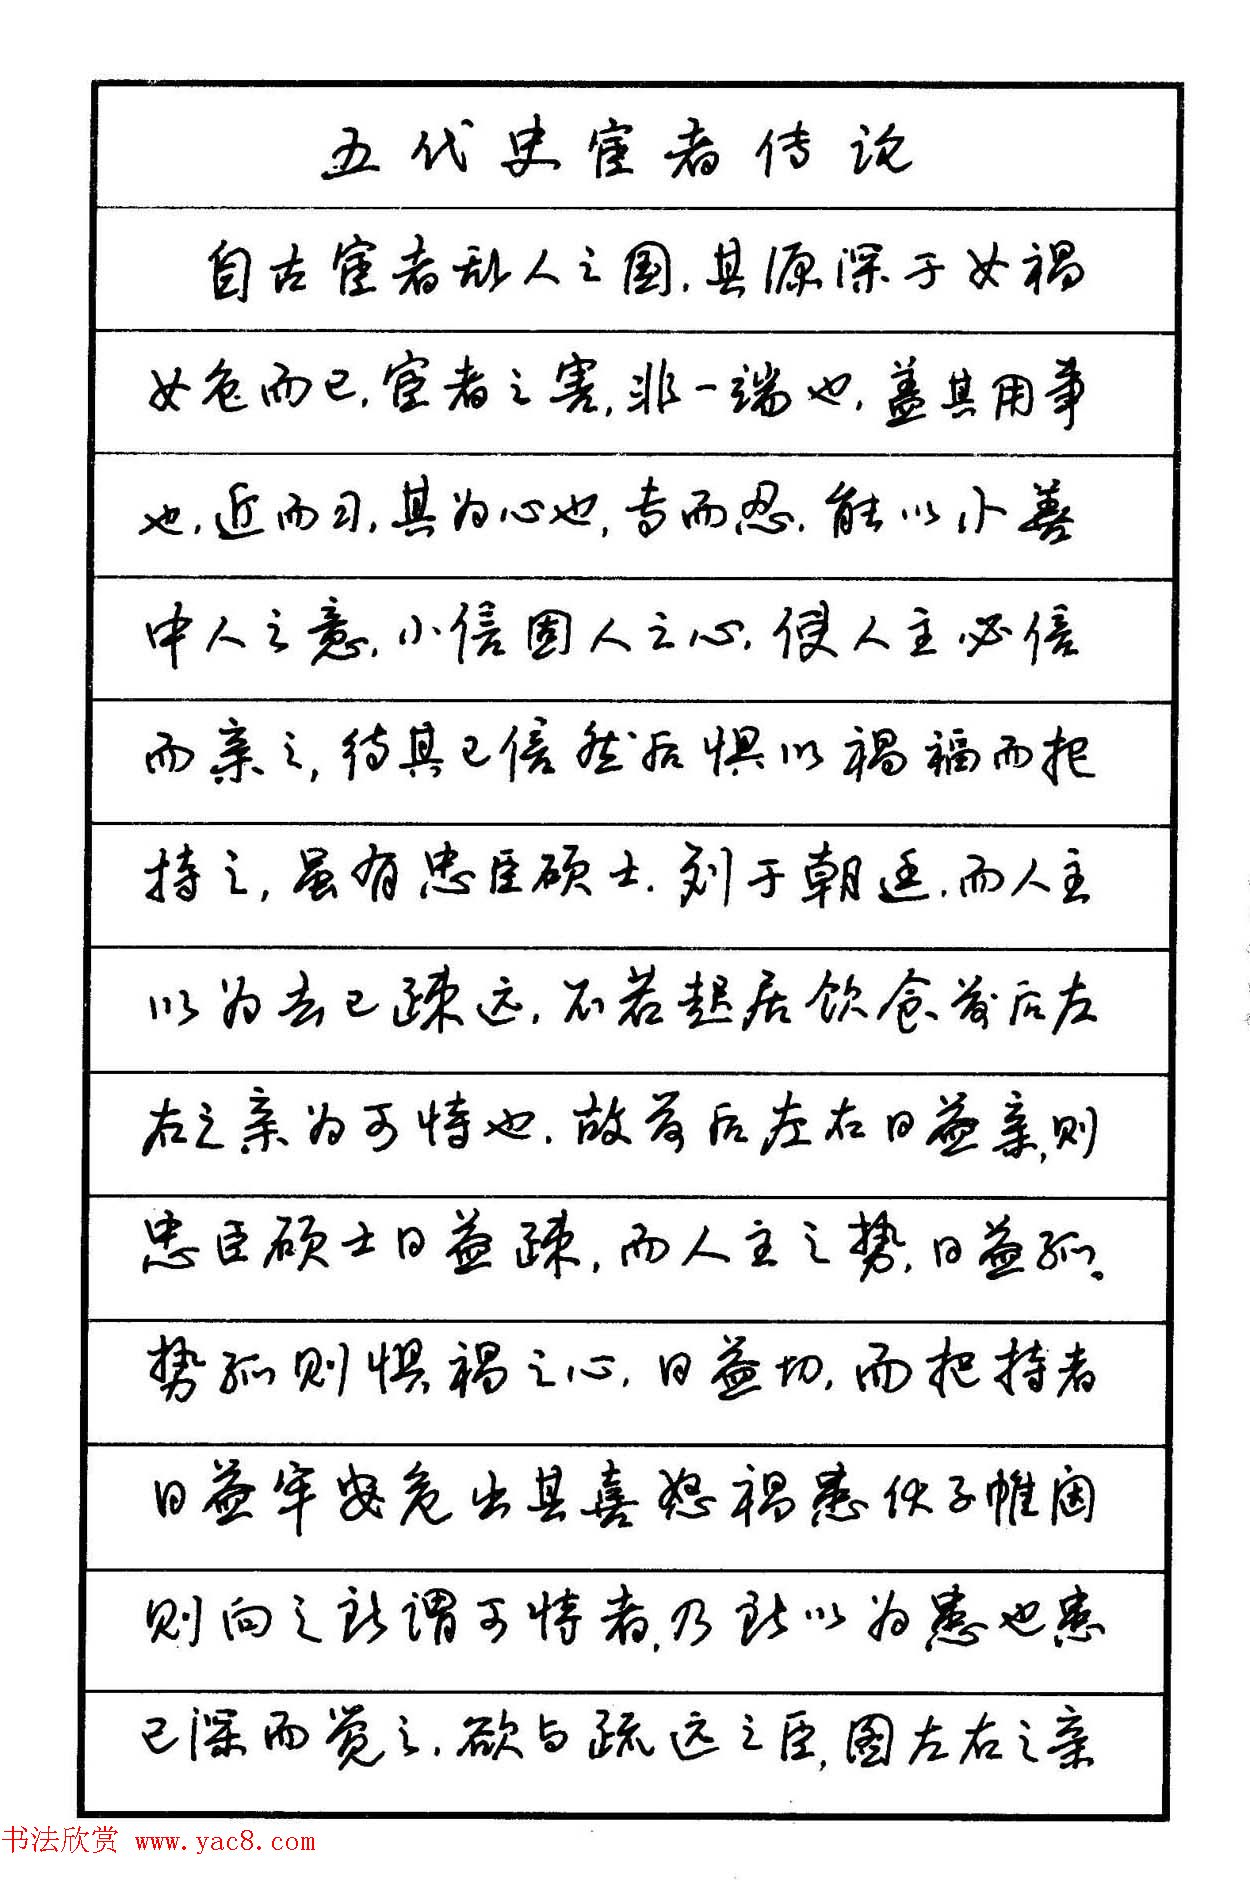 五代史宦者传论
自古宦者乱人之国.其源深于女祸
女色而已,宦者之害,非一端也,盖其用事
也,近而习,其为心也,专而忍.能以小善
中人之意,小信固人之心,使人主必信
而亲之,待其已信然后惧以祸福而把
持之,虽有忠臣硕士.列于朝廷.而人主
以为去已疏远,不若起居饮食前后左
右之亲为可恃也.故前后左右日益亲,则
忠臣硕士日益疏,而人主之势,日益孤。
势孤则惧祸之心,日益切,而把持者
日益牢安危出其喜怒祸患伏于帷闼
则向之所谓可恃者,乃所以为患也患
已深而觉之.欲与疏远之臣,图左右之亲
书法欣赏 www.yac8.com